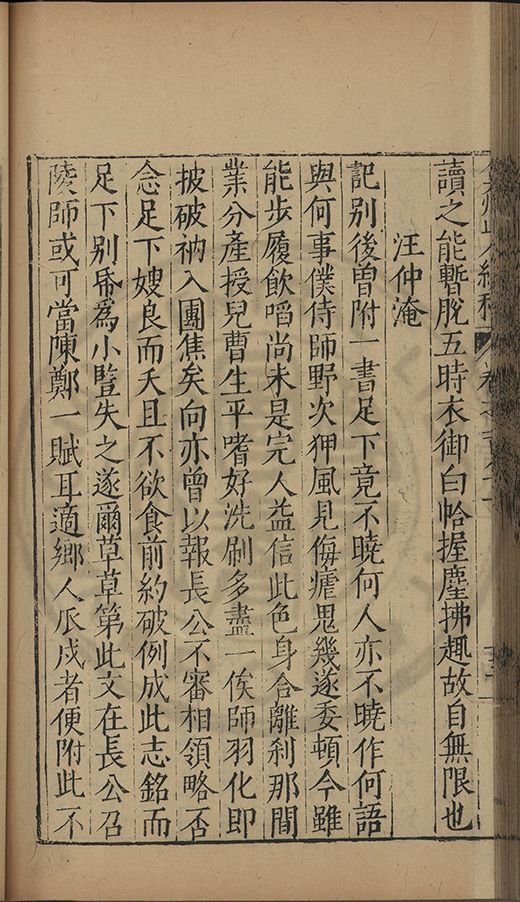 讀之能暫脫五時衣御白帢握麈拂趣故自無限也
汪仲淹
記別後曾附一書足下竟不曉何人亦不曉作何語
與何事僕侍師野次狎風見侮瘧鬼幾遂委頓今雖
能步履飲啗尚未是完人益信此色身合離刹那間
業分產授兒曹生平嗜好洗刷多盡一俟師羽化即
披破衲入團焦矣向亦曾以報長公不審相領略否
念足下嫂良而夭且不欲食前約破例成此志銘而
足下別帋為小豎失之遂爾草草第此文在長公召
陵師或可當陳鄭一賦耳適鄉人𠂢戍者便附此不